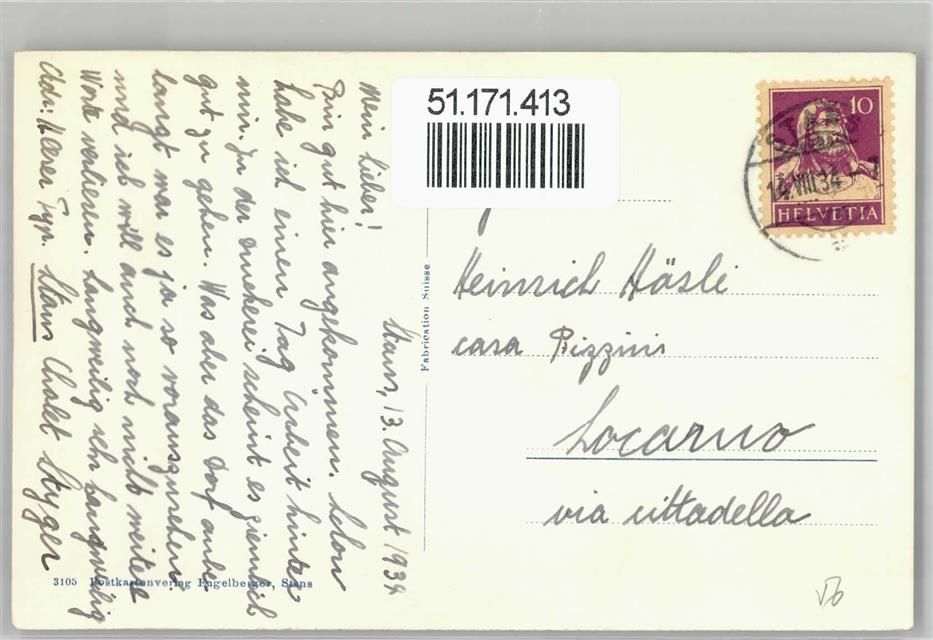 51.171.413
Stans, 13. August 1934
Mein lieber!
Bin gut hier angekommen. Schon
habe ich einen Tag Arbeit hinter
mir. In der Druckerei scheint es ziemlich
gut zu gehen. Was aber das Dorf anbe-
langt war es ja so vorauszusehen
und ich will auch noch nicht weitere
Worte verlieren. Langweilig sehr langweilig
Adr: Heerer Typ. Stans Chalet Styger
3105 Postkartenverlag Engelberger, Stans
Fabrication Suisse
10
HELVETIA
14.VIII.34
Heinrich Hösli
casa Pizzini
Locarno
via cittadella